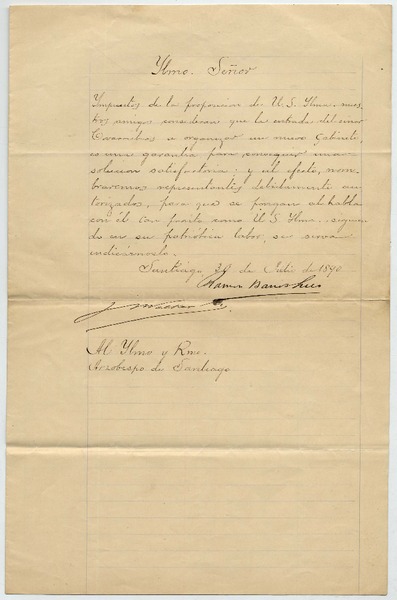 Yltmo. Señor
Impuestos de la proposicion de U. S. Iltma. nues-
tros amigos consideran que la entrada del señor
a organizar un nuevo Gabinete,
es una garantía para conseguir una
solucion satisfactoria; y al efecto, nom-
braremos representantes debidamente au-
torizados, para que se pongan al habla
con él tan pronto como U. S. Iltma.
do en su patriótica labor, se sirva
indicárnoslo.
Santiago, 30 de Julio de 1890.
Ramon Barros Luco
J. Walker
Al Yltmo y Rmo.
Arzobispo de Santiago